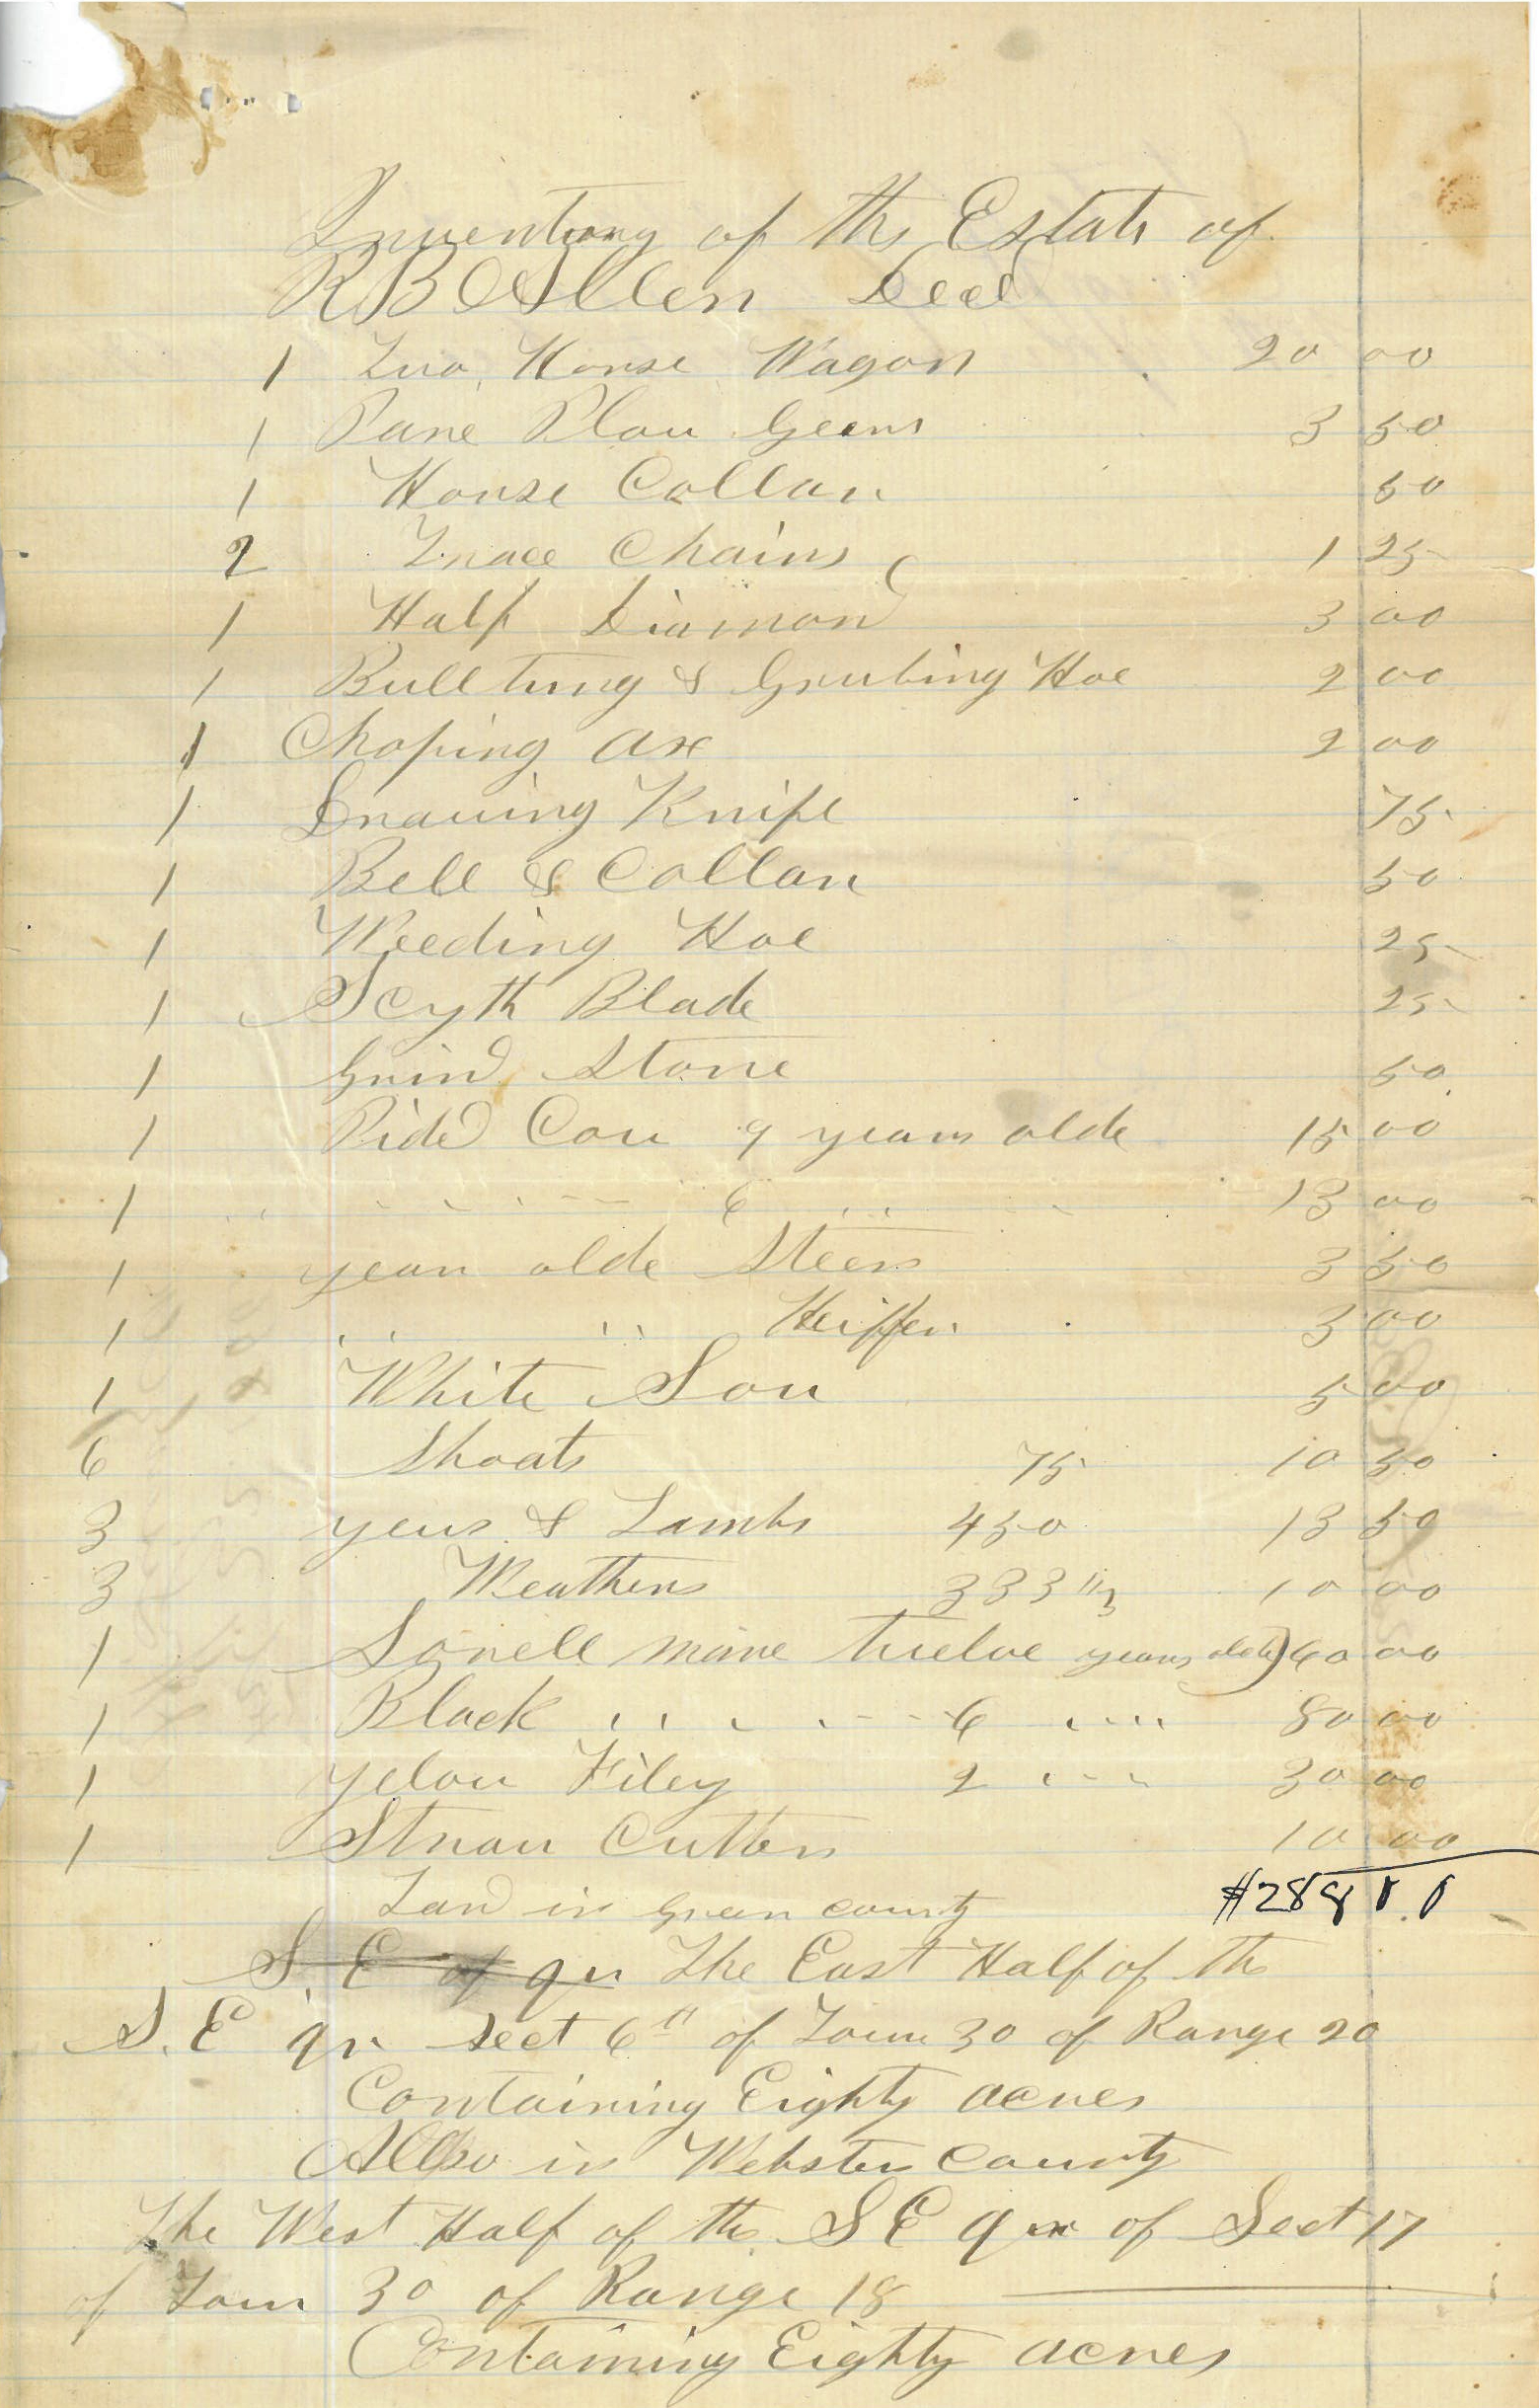 Inventory of the Estate of
R B Allen Decd
1 Two Horse Wagon 20 00
1 Pare Plow Geers 3 50
1 Horse Collar 50
2 Trace Chains 1 25
1 Half Diamond 3 00
1 Bull tung & Grubing Hoe 2 00
1 Choping ax 2 00
1 Drawing Knife 75
1 Bell & Collar 50
1 Weeding Hoe 25
1 Scyth Blade 25
1 Grind Stone 50
1 Pided Cow 9 years olde 15 00
1 " " " 6 " " 13 00
1 year olde Steer 3 50
1 " " Heiffer 3 00
1 White Sow 5 00
6 Shoats 75 10 50
3 yews & Lambs 4 50 13 50
3 Weathers 333 1/3 10 00
1 Sorrell mare twelve years olde 60 00
1 Black " " 6 " " 80 00
1 yelow Filey 2 " " 30 00
1 Straw Cutter 10 00
Land in Green county $288
S. E of qr The East Half of the
S. E qr sect 6th of Town 30 of Range 20
Containing Eighty acres
Allso in Webster County
The West Half of the S E qr of Sect 17
of Town 30 of Range 18
Containing Eighty acres